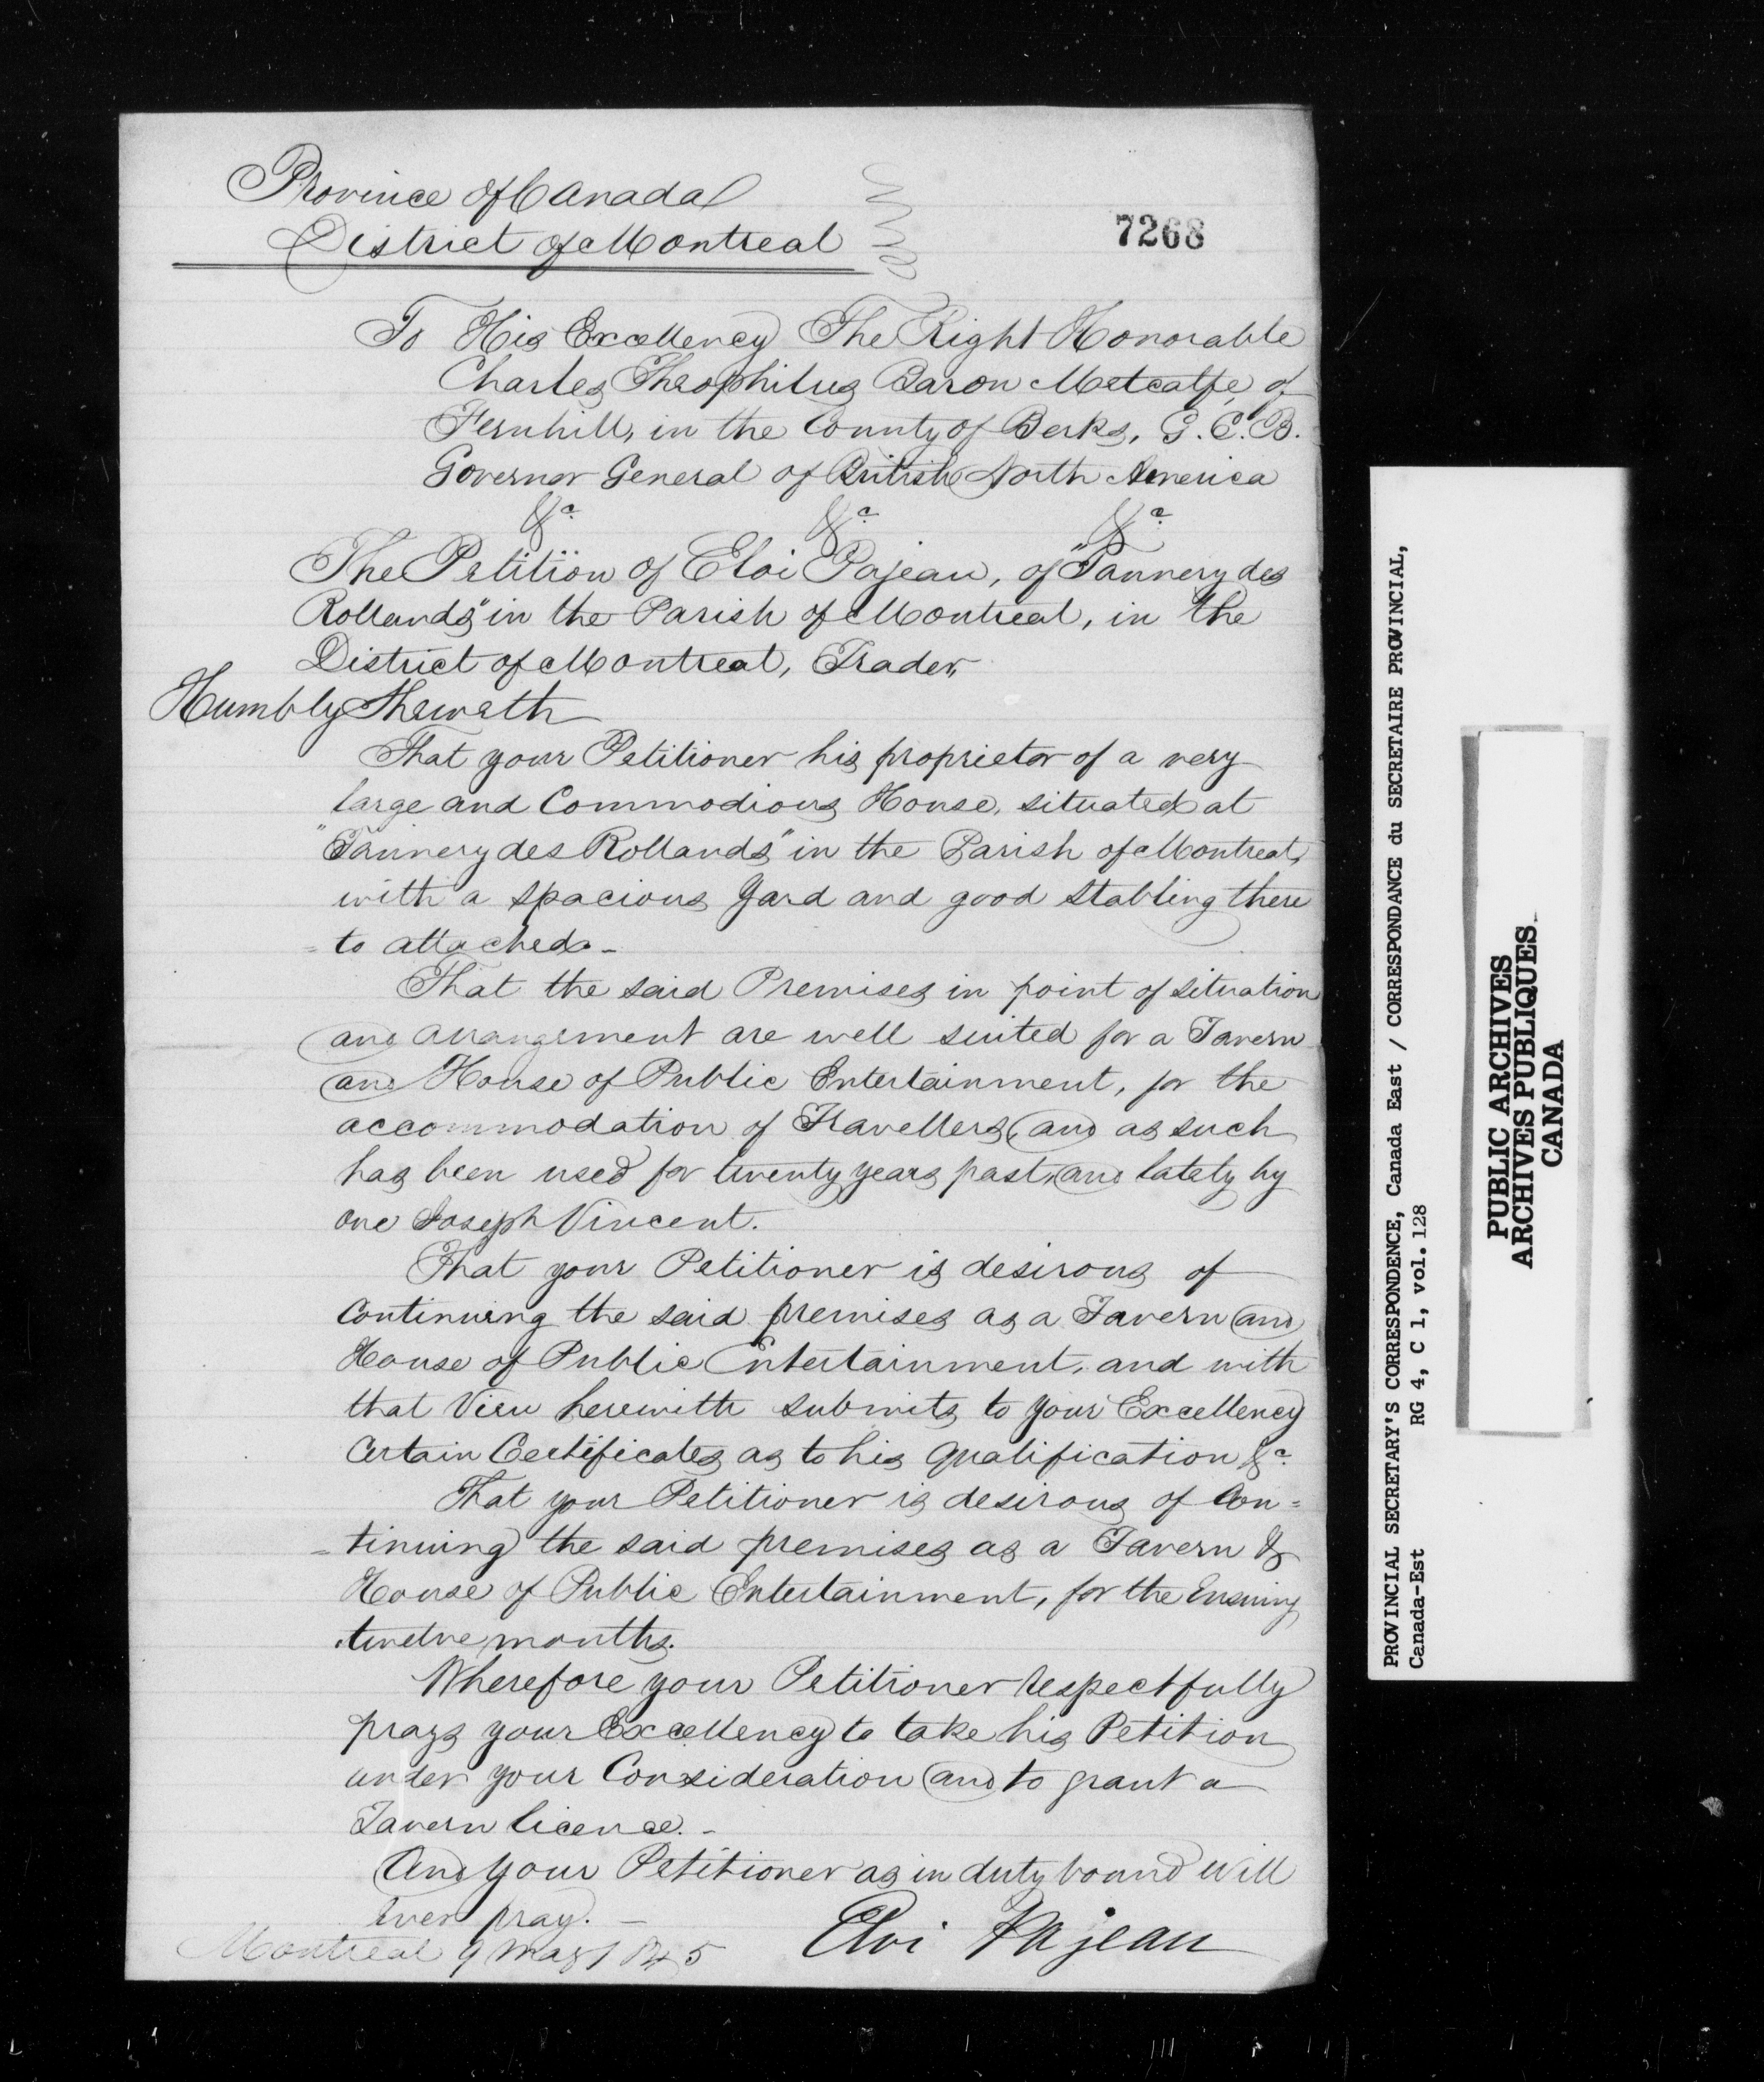 Province of Canada
District of Montreal
7268
To His Excellency The Right Honorable
Charles Theophilus Baron Metcalfe, of
Fernhill, in the County of Berks, G.C.B.
Governor General of British North America
&c. &c. &c.
The Petition of Eloi Pajeau, of "Tannery des
Rollands" in the Parish of Montreal, in the
District of Montreal, Trader,
Humbly Sheweth
That your Petitioner his proprietor of a very
large and Commodious House, situated at
"Tannery des Rollands" in the Parish of Montreal,
with a spacious Yard and good Stabling there
= to attached. -
That the said Premises in point of situation
and arrangement are well suited for a Tavern
and House of Public Entertainment, for the
accommodation of Travellers, and as such
has been used for twenty years past, and lately by
one Joseph Vincent.
That your Petitioner is desirous of
Continuing the said premises as a Tavern and
House of Public Entertainment, and with
that View herewith submits to your Excellency
Certain Certificates as to his qualification &c.
That your Petitioner is desirous of Con=
=tinuing the said premises as a Tavern &
House of Public Entertainment, for the Ensuing
twelve months.
Wherefore your Petitioner respectfully
prays your Excellency to take his Petition
under your Consideration and to grant a
Tavern licence. -
And your Petitioner as in duty bound Will
Ever pray. -
Montreal 9 May 1845
Eloi Pajeau
PROVINCIAL SECRETARY'S CORRESPONDENCE, Canada East / CORRESPONDANCE du SECRETAIRE PROVINCIAL,
Canada-Est RG 4, C 1, vol. 128
PUBLIC ARCHIVES
ARCHIVES PUBLIQUES
CANADA